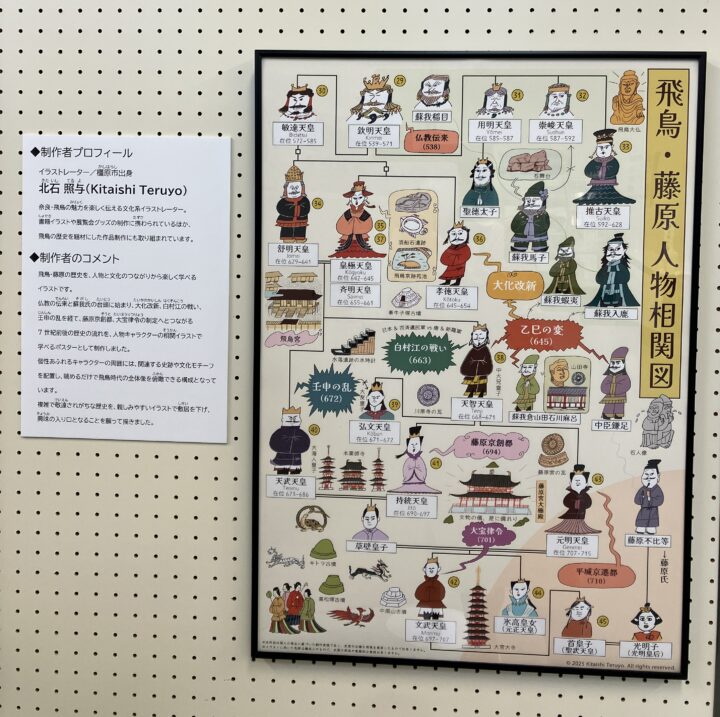 ◆制作者プロフィール
イラストレーター/橿原市出身
北石 照与(Kitaishi Teruyo)
奈良・飛鳥の魅力を楽しく伝える文化系イラストレーター。
書籍イラストや展覧会グッズの制作に携わられているほか、
飛鳥の歴史を題材にした作品制作にも取り組まれています。
◆制作者のコメント
飛鳥・藤原の歴史を、人物と文化のつながりから楽しく学べる
イラストです。
仏教の伝来と蘇我氏の台頭に始まり、大化改新、白村江の戦い、
壬申の乱を経て、藤原京創都、大宝律令の制定へとつながる
7世紀前後の歴史の流れを、人物キャラクターの相関イラストで
学べるポスターとして制作しました。
個性あふれるキャラクターの周囲には、関連する史跡や文化モチーフ
を配置し、眺めるだけで飛鳥時代の全体像を俯瞰できる構成となって
います。
複雑で敬遠されがちな歴史を、親しみやすいイラストで敷居を下げ、
興味の入り口となることを願って描きました。
飛鳥・藤原 人物相関図
30
敏達天皇
Bidatsu
在位 572-585
29
欽明天皇
Kinmei
在位 539-571
蘇我稲目
仏教伝来
(538)
31
用明天皇
Yōmei
在位 585-587
32
崇峻天皇
Sushun
在位 587-592
飛鳥大仏
33
推古天皇
Suiko
在位 592-628
34
舒明天皇
Jomei
在位 629-641
35
37
皇極天皇
Kōgyoku
在位 642-645
斉明天皇
Saimei
在位 655-661
酒船石遺跡
飛鳥京跡苑池
牽牛子塚古墳
聖徳太子
石舞台
蘇我馬子
36
孝徳天皇
Kōtoku
在位 645-654
大化改新
蘇我蝦夷
蘇我入鹿
飛鳥宮
水落遺跡の水時計
白村江の戦い
(663)
乙巳の変
(645)
壬申の乱
(672)
39
弘文天皇
Kōbun
在位 671-672
川原寺の瓦
38
中大兄皇子
天智天皇
Tenji
在位 668-671
山田寺
蘇我倉山田石川麻呂
中臣鎌足
石人像
40
大海人皇子
天武天皇
Tenmu
在位 673-686
本薬師寺
41
持統天皇
Jitō
在位 690-697
藤原京創都
(694)
藤原宮の瓦
藤原宮大極殿
文物の儀、是に備れり
43
元明天皇
Genmei
在位 707-715
藤原不比等
→藤原氏
草壁皇子
大宝律令
(701)
平城京遷都
(710)
キトラ古墳
高松塚古墳
中尾山古墳
42
文武天皇
Monmu
在位 697-707
大官大寺
44
氷高皇女
(元正天皇)
45
首皇子
(聖武天皇)
光明子
(光明皇后)
© 2025 Kitaishi Teruyo. All rights reserved.